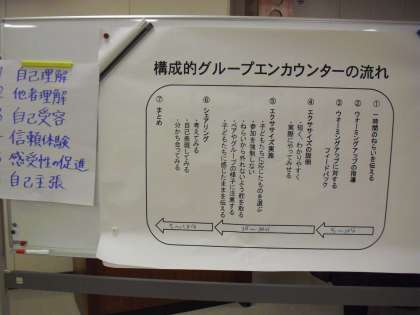 自己理解
他者理解
自己受容
信頼体験
感受性の促進
自己主張
構成的グループエンカウンターの流れ
① 一時間のねらいを伝える
② ウォーミングアップの指導
③ ウォーミングアップに対する
フィードバック
④ エクササイズの説明
・短く、わかりやすく
・実際にやってみせる
⑤ エクササイズ実施
・子どもたちに応じたものを選ぶ
・参加を強制しない
・ねらいから外れないよう舵を取る
・ペアやグループの様子に注意する
・子どもたちに感じたままを伝える
⑥ シェアリング
・考えてみる
・自己表現してみる
・分かち合ってみる
⑦ まとめ